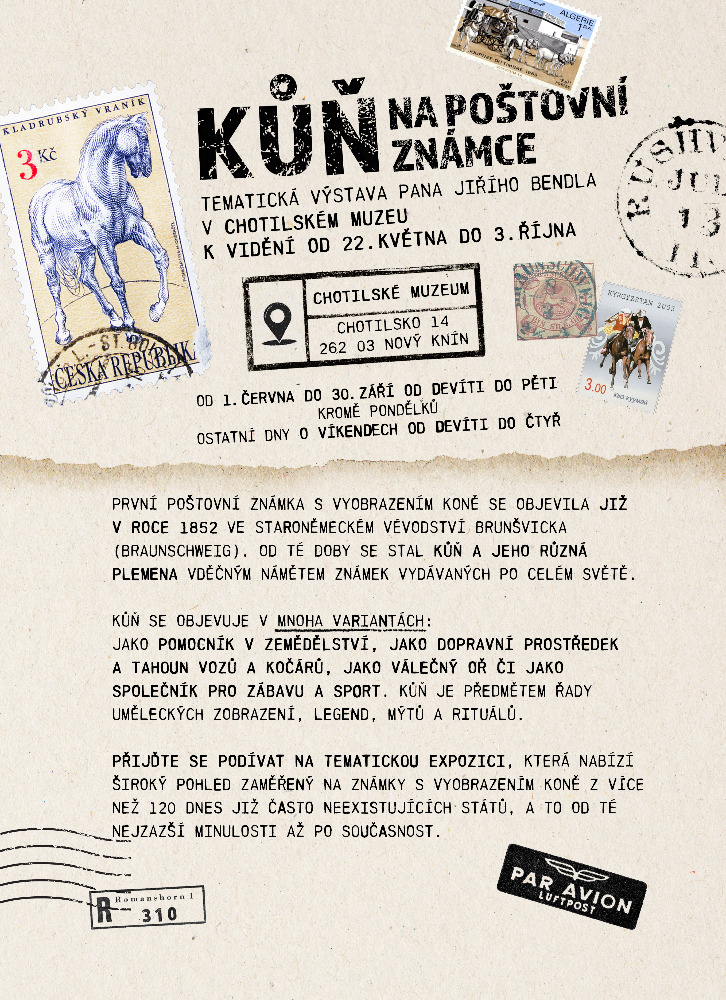 ALGERIE
KLADRUBSKÝ VRANÍK
3 Kč
ČESKÁ REPUBLIK
KŮŇ NA POŠTOVNÍ
ZNÁMCE
TEMATICKÁ VÝSTAVA PANA JIŘÍHO BENDLA
V CHOTILSKÉM MUZEU
K VIDĚNÍ OD 22.KVĚTNA DO 3.ŘÍJNA
RUSHV
JUL
13
CHOTILSKÉ MUZEUM
CHOTILSKO 14
262 03 NOVÝ KNÍN
KYRGYZSTAN 2003
3.00
OD 1.ČERVNA DO 30.ZÁŘÍ OD DEVÍTI DO PĚTI
KROMĚ PONDĚLKŮ
OSTATNÍ DNY O VÍKENDECH OD DEVÍTI DO ČTYŘ
PRVNÍ POŠTOVNÍ ZNÁMKA S VYOBRAZENÍM KONĚ SE OBJEVILA JIŽ
V ROCE 1852 VE STARONĚMECKÉM VÉVODSTVÍ BRUNŠVICKA
(BRAUNSCHWEIG). OD TÉ DOBY SE STAL KŮŇ A JEHO RŮZNÁ
PLEMENA VDĚČNÝM NÁMĚTEM ZNÁMEK VYDÁVANÝCH PO CELÉM SVĚTĚ.
KŮŇ SE OBJEVUJE V MNOHA VARIANTÁCH:
JAKO POMOCNÍK V ZEMĚDĚLSTVÍ, JAKO DOPRAVNÍ PROSTŘEDEK
A TAHOUN VOZŮ A KOČÁRŮ, JAKO VÁLEČNÝ OŘ ČI JAKO
SPOLEČNÍK PRO ZÁBAVU A SPORT. KŮŇ JE PŘEDMĚTEM ŘADY
UMĚLECKÝCH ZOBRAZENÍ, LEGEND, MÝTŮ A RITUÁLŮ.
PŘIJĎTE SE PODÍVAT NA TEMATICKOU EXPOZICI, KTERÁ NABÍZÍ
ŠIROKÝ POHLED ZAMĚŘENÝ NA ZNÁMKY S VYOBRAZENÍM KONĚ Z VÍCE
NEŽ 120 DNES JIŽ ČASTO NEEXISTUJÍCÍCH STÁTŮ, A TO OD TÉ
NEJZAZŠÍ MINULOSTI AŽ PO SOUČASNOST.
R Romanshorn 1
310
PAR AVION
LUFTPOST